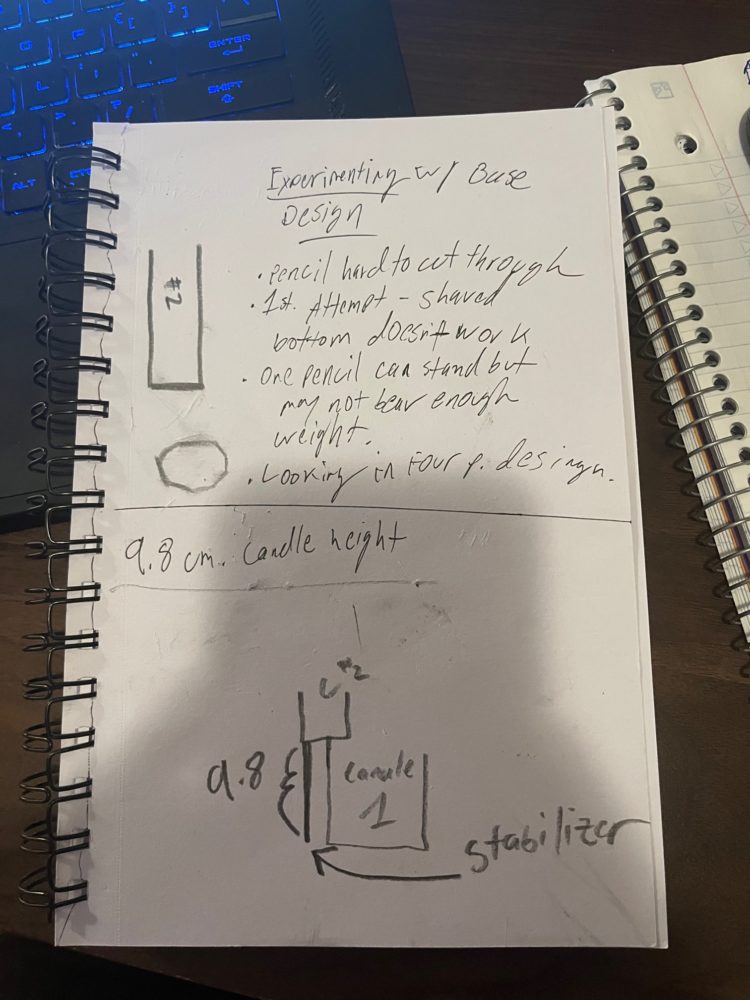 ENTER
SHIFT
ALT
Experimenting w/ Base
Design
#2
· Pencil hard to cut through
· 1st. Attempt - shaved
bottom doesn't work
· One pencil can stand but
may not bear enough
weight.
· Looking in four p. desingn.
9.8 cm. candle height
#2
9.8
Candle
1
Stabilizer